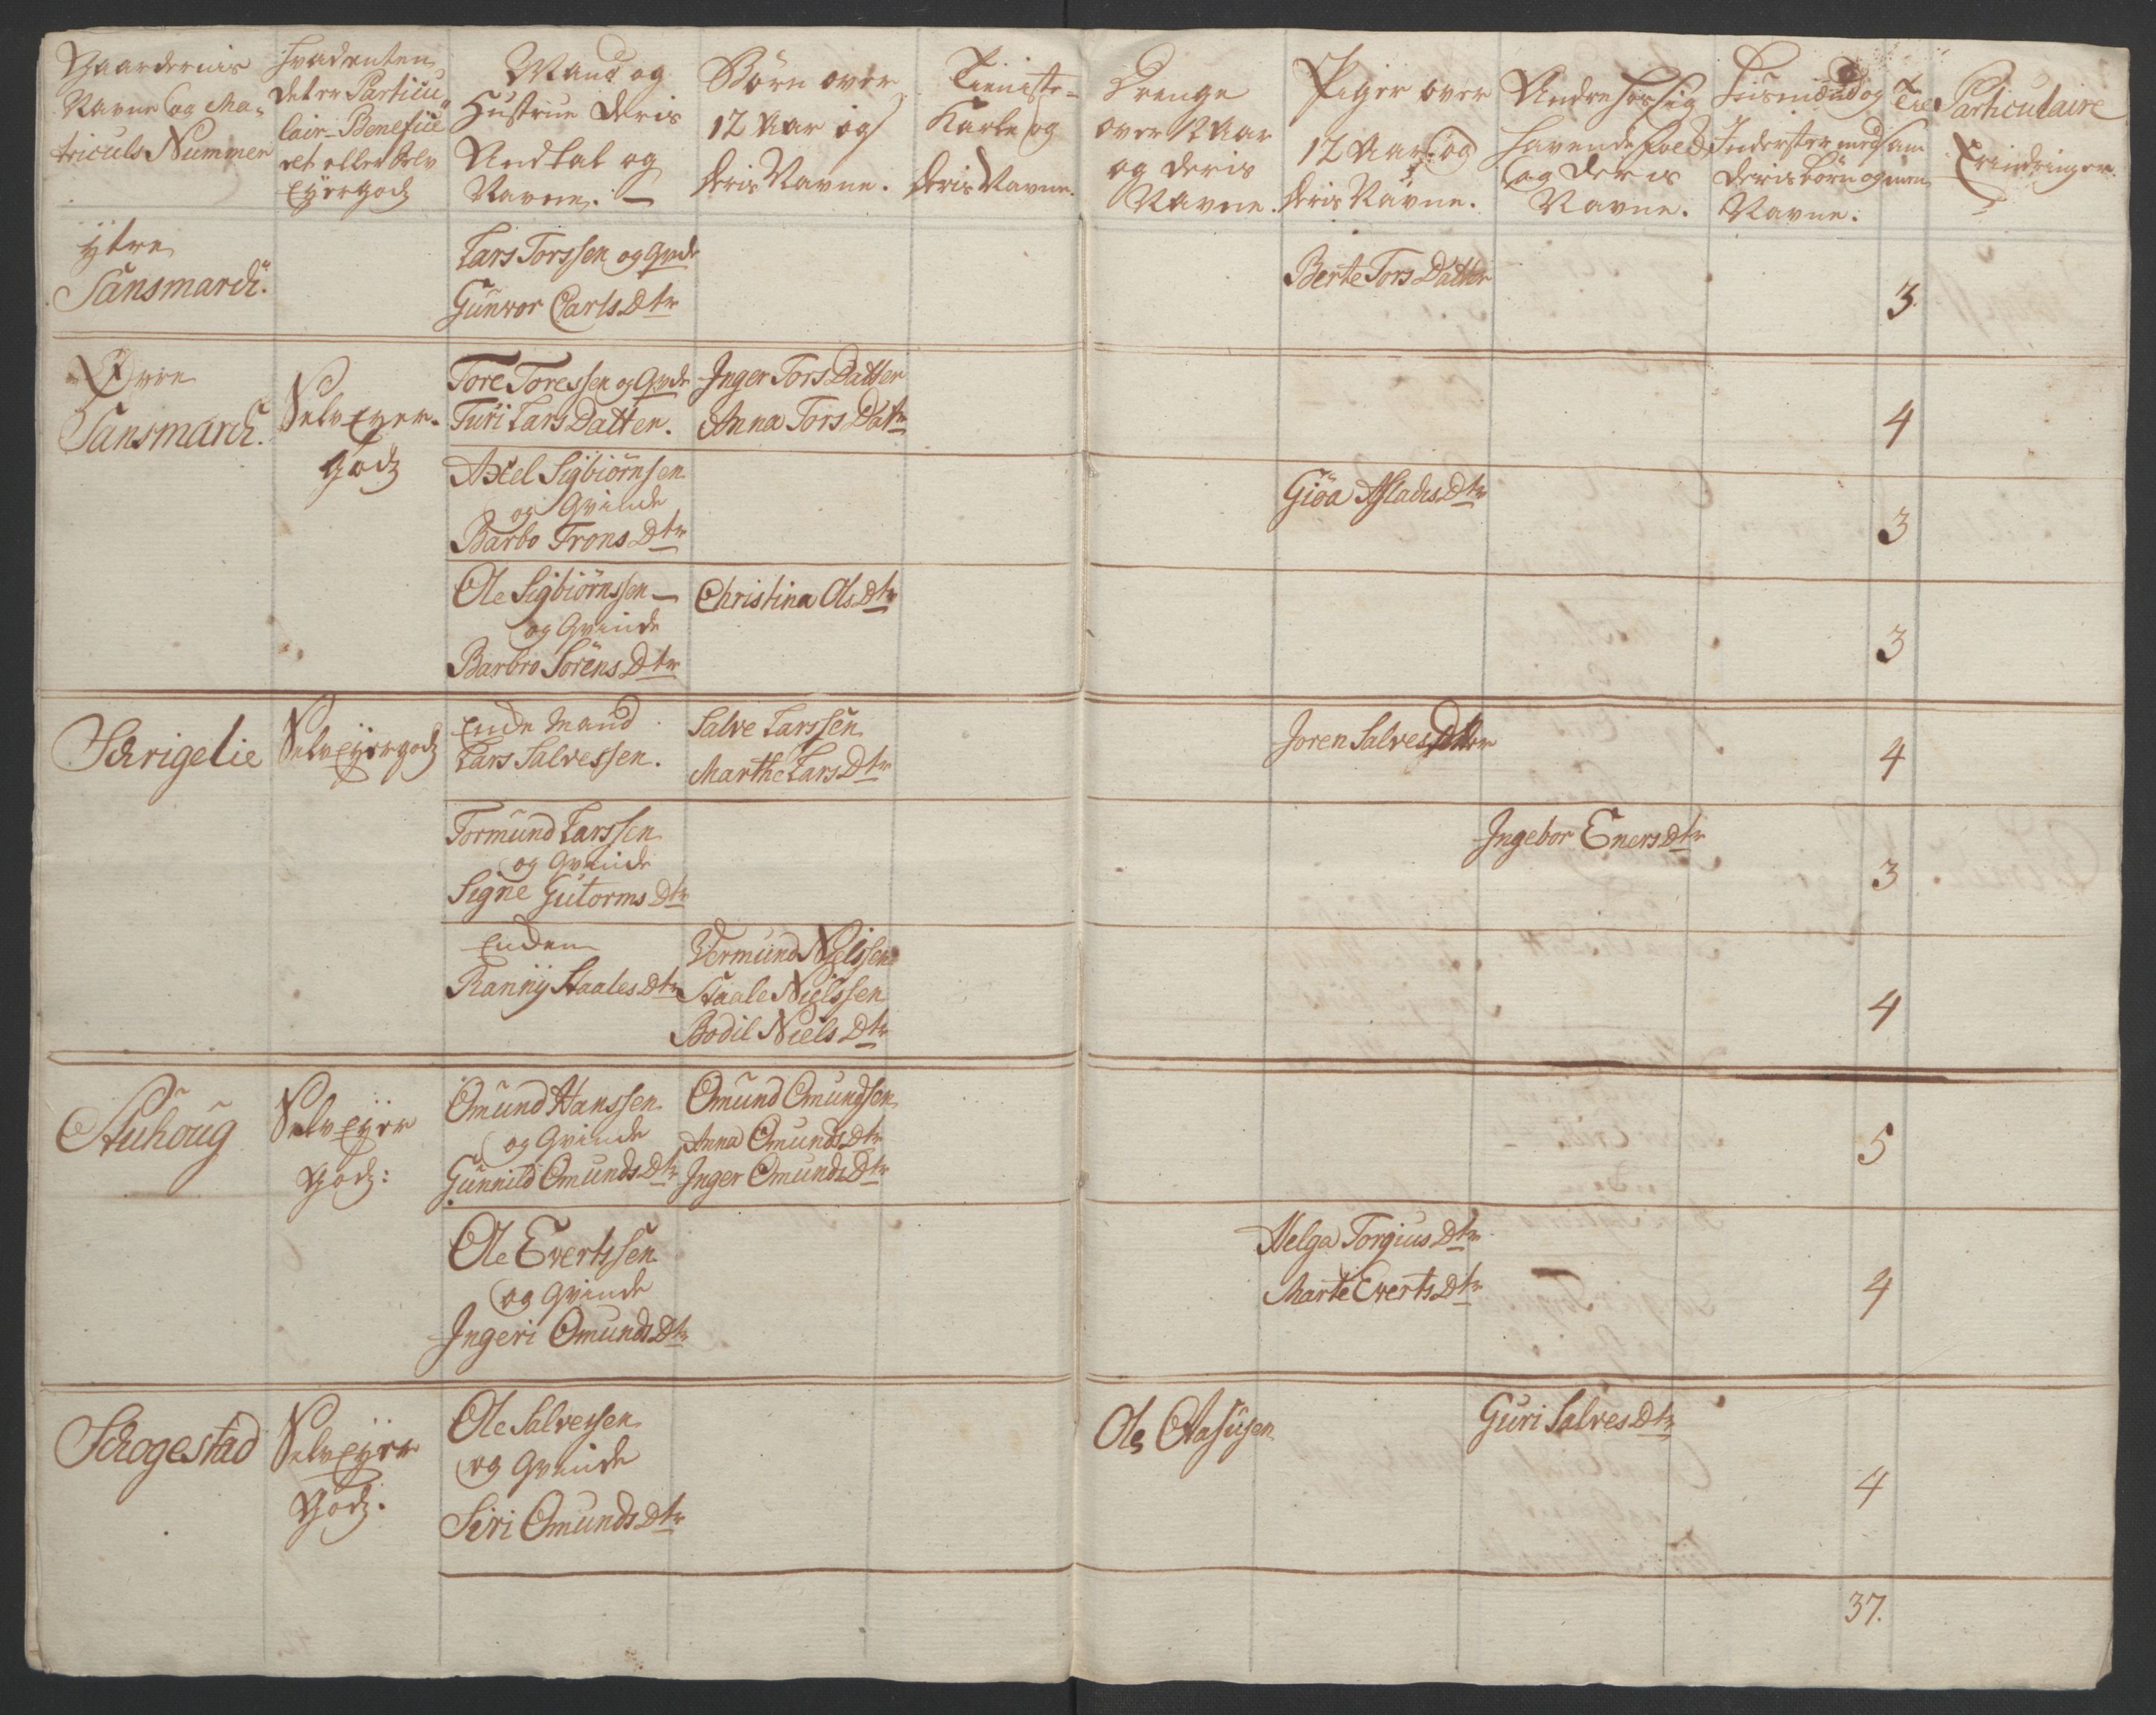 Gaardernis
Navne og Ma-
triculs Nummer
Hvad enten
det er Particu
lair-Benefice
ret eller Selv
Eyergodz
Mand og
Hustrue deris
Andtal og
Navne. —
Børn over
12 Aar og
deris Navne.
Tieniste-
Karle og
deris Navne.
Drenge
over 12 Aar
og deris
Navne.
Piger over
12 Aar og
deris Navne.
Andre hos sig
havende folk
og deris
Navne.
Huusmænd og
Inderster med sam
deris børn og
Navne.
Particulaire
Erindringer.
ytre
Sansmarck.
Lars Torssen og Qvde
Gunvor Carls Dtr
Berte Tors Datter
3.
Øvre
Sansmarck.
Selv Eyer-
Godz
Tore Toressen og Qvde
Turi Lars Datter.
Inger Tors Datter
Anna Tors Datr
4
Axel Sigbiörnsen
og Qvinde
Barbo Trons Dtr
Giöa Aslacks Dtr
3
Ole Sigbiörnssen —
og Qvinde
Barbro Sörens Dtr
Christina Ols Dtr
3
Schrigelie
Selv Eyergodz
Enke Mand
Lars Salvessen.
Salve Larssen
Marthe Lars Dtr
Joren Salves Datter
4
Tormund Larssen
og Qvinde
Signe Gutorms Dtr
Ingebor Eners Dtr
3
Enken
Ranny Staales Dtr
Vermund Nielssen
Staale Nielssen
Bodil Niels Dtr
4
Stuhoug
Selv Eyer
Godz:
Omund Hanssen
og Qvinde
Gunnild Omunds Dtr
Omund Omundsen
Anna Omunds Dtr
Inger Omunds Dtr
5
Ole Evertssen
og Qvinde
Ingeri Omunds Dtr
Helga Torgius Dtr
Marte Everts Dtr
4
Schogestad
Selv Eyer
Godz.
Ole Salvessen
og Qvinde
Siri Omunds Dtr
Ole
Guri Salves Dtr
4
37.